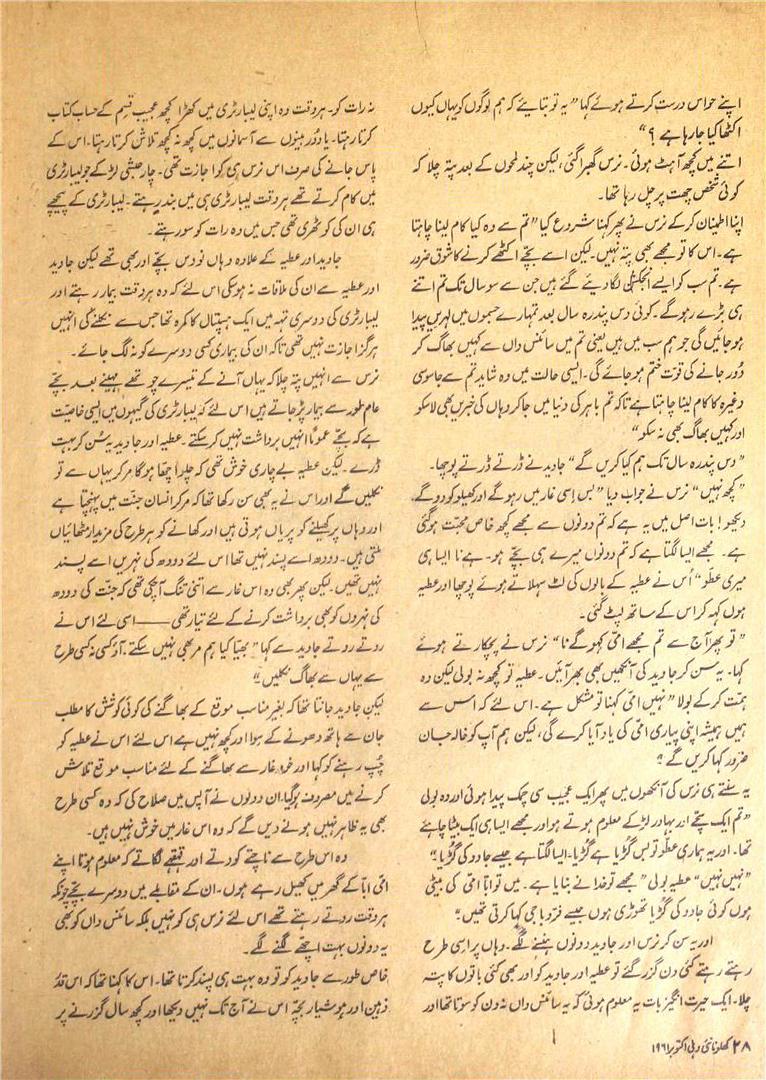 اپنے حواس درست کرتے ہوئے کہا ”یہ تو بتائیے کہ ہم لوگوں کو یہاں کیوں
اکٹھا کیا جا رہا ہے ؟“
اتنے میں کچھ آہٹ ہوئی۔ نرس گھبرا گئی، لیکن چند لمحوں کے بعد پتہ چلا کہ
کوئی شخص چھت پر چل رہا تھا۔
اپنا اطمینان کر کے نرس نے پھر کہنا شروع کیا ”تم سے وہ کیا کام لینا چاہتا
ہے۔ اس کا تو مجھے بھی پتہ نہیں۔ لیکن اسے بچے اکٹھے کرنے کا شوق ضرور
ہے۔ تم سب کو ایسے انجکشن لگا دیئے گئے ہیں جن سے سو سال تک تم اتنے
ہی بڑے رہو گے۔ کوئی دس پندرہ سال بعد تمہارے جسموں میں لہریں پیدا
ہو جائیں گی جو ہم سب میں ہیں یعنی تم میں سائنس داں سے کہیں بھاگ کر
دور جانے کی قوت ختم ہو جائے گی۔ ایسی حالت میں وہ شاید تم سے جاسوسی
وغیرہ کا کام لینا چاہتا ہے تاکہ تم باہر کی دنیا میں جا کر وہاں کی خبریں بھی لا سکو
اور کہیں بھاگ بھی نہ سکو“
”دس پندرہ سال تک ہم کیا کریں گے“ جاوید نے ڈرتے ڈرتے پوچھا۔
”کچھ نہیں“ نرس نے جواب دیا ”بس اسی غار میں رہو گے اور کھیلو کودو گے۔
دیکھو! بات اصل میں یہ ہے کہ تم دونوں سے مجھے کچھ خاص محبت ہو گئی
ہے۔ مجھے ایسا لگتا ہے کہ تم دونوں میرے ہی بچے ہو۔ ہے نا ایسا ہی
میری عطو“ اس نے عطیہ کے بالوں کی لٹ سہلاتے ہوئے پوچھا اور عطیہ
ہوں کہہ کر اس کے ساتھ لپٹ گئی۔
”تو پھر آج سے تم مجھے امی کہو گے نا“ نرس نے پچکارتے ہوئے
کہا۔ یہ سن کر جاوید کی آنکھیں بھی بھر آئیں۔ عطیہ تو کچھ نہ بولی لیکن وہ
ہمت کر کے بولا ”نہیں امی کہنا تو مشکل ہے۔ اس لئے کہ اس سے
ہمیں ہمیشہ اپنی پیاری امی کی یاد آیا کرے گی، لیکن ہم آپ کو خالہ جان
ضرور کہا کریں گے“
یہ سنتے ہی نرس کی آنکھوں میں پھر ایک عجیب سی چمک پیدا ہوئی اور وہ بولی
”تم ایک سچے اور بہادر لڑکے معلوم ہوتے ہو اور مجھے ایسا ہی ایک بیٹا چاہئے
تھا۔ اور یہ ہماری عطو تو بس گڑیا ہے گڑیا۔ ایسا لگتا ہے جیسے جادو کی گڑیا۔“
”نہیں نہیں“ عطیہ بولی ”مجھے تو خدا نے بنایا ہے۔ میں تو ابا امی کی بیٹی
ہوں کوئی جادو کی گڑیا تھوڑی ہوں جیسے فرو باجی کہا کرتی تھیں۔“
اور یہ سن کر نرس اور جاوید دونوں ہنسنے لگے۔ وہاں پر اسی طرح
رہتے رہتے کئی دن گزر گئے تو عطیہ اور جاوید کو اور بھی کئی باتوں کا پتہ
چلا۔ ایک حیرت انگیز بات یہ معلوم ہوئی کہ یہ سائنس داں نہ دن کو سوتا تھا اور
نہ رات کو۔ ہر وقت وہ اپنی لیبارٹری میں کھڑا کچھ عجیب قسم کے حساب کتاب
کرتا رہتا۔ یا دوربینوں سے آسمانوں میں کچھ نہ کچھ تلاش کرتا رہتا۔ اس کے
پاس جانے کی صرف اس نرس ہی کو اجازت تھی۔ چار حبشی لڑکے جو لیبارٹری
میں کام کرتے تھے ہر وقت لیبارٹری ہی میں بند رہتے۔ لیبارٹری کے پیچھے
ہی ان کی کوٹھری تھی جس میں وہ رات کو سو رہتے۔
جاوید اور عطیہ کے علاوہ وہاں نو دس بچے اور بھی تھے لیکن جاوید
اور عطیہ سے ان کی ملاقات نہ ہو سکی اس لئے کہ وہ ہر وقت بیمار رہتے اور
لیبارٹری کی دوسری تہہ میں ایک ہسپتال کا کمرہ تھا جس سے نکلنے کی انہیں
ہرگز اجازت نہیں تھی تاکہ ان کی بیماری کسی دوسرے کو نہ لگ جائے۔
نرس سے انہیں پتہ چلا کہ یہاں آنے کے تیسرے چوتھے مہینے بعد بچے
عام طور سے بیمار پڑ جاتے ہیں اس لئے کہ لیبارٹری کی گیسوں میں ایسی خاصیت
ہے کہ بچے عموماً انہیں برداشت نہیں کر سکتے۔ عطیہ اور جاوید یہ سن کر بہت
ڈرے۔ لیکن عطیہ بے چاری خوش تھی کہ چلو اچھا ہوگا مر کر یہاں سے تو
نکلیں گے اور اس نے یہ بھی سن رکھا تھا کہ مر کر انسان جنت میں پہنچتا ہے
اور وہاں پر کھیلنے کو پریاں ہوتی ہیں اور کھانے کو ہر طرح کی مزیدار مٹھائیاں
ملتی ہیں۔ دودھ اسے پسند نہیں تھا اس لئے دودھ کی نہریں اسے پسند
نہیں تھیں۔ لیکن پھر بھی وہ اس غار سے اتنی تنگ آ چکی تھی کہ جنت کی دودھ
کی نہروں کو بھی برداشت کرنے کے لئے تیار تھی —— اسی لئے اس نے
روتے روتے جاوید سے کہا ”بھیا کیا ہم مر بھی نہیں سکتے۔ آؤ کسی نہ کسی طرح
سے یہاں سے بھاگ نکلیں“
لیکن جاوید جانتا تھا کہ بغیر مناسب موقع کے بھاگنے کی کوئی کوشش کا مطلب
جان سے ہاتھ دھونے کے سوا اور کچھ نہیں ہے اس لئے اس نے عطیہ کو
چپ رہنے کو کہا اور خود غار سے بھاگنے کے لئے مناسب موقع تلاش
کرنے میں مصروف ہو گیا۔ ان دونوں نے آپس میں صلاح کی کہ وہ کسی طرح
بھی یہ ظاہر نہیں ہونے دیں گے کہ وہ اس غار میں خوش نہیں ہیں۔
وہ اس طرح سے ناچتے کودتے اور قہقہے لگاتے کہ معلوم ہوتا اپنے
امی ابا کے گھر میں کھیل رہے ہوں۔ ان کے مقابلے میں دوسرے بچے چونکہ
ہر وقت روتے رہتے تھے اس لئے نرس ہی کو نہیں بلکہ سائنس داں کو بھی
یہ دونوں بہت اچھے لگنے لگے۔
خاص طور سے جاوید کو تو وہ بہت ہی پسند کرتا تھا۔ اس کا کہنا تھا کہ اس قدر
ذہین اور ہوشیار بچہ اس نے آج تک نہیں دیکھا اور کچھ سال گزرنے پر
۲۸ کھلونا نئی دہلی اکتوبر ۱۹۶۱